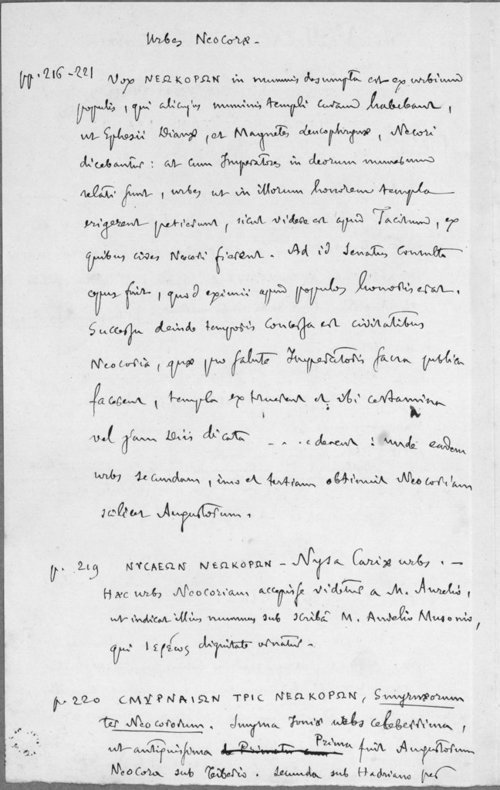 Urbes Neocoræ.
pp. 216-221 Vox ΝΕΩΚΟΡΩΝ in nummis desumpta est ex urbium
populis, qui alicujus numinis templi curam habebant,
ut Ephesii Dianæ, et Magnetes Leucophrynæ, Neocori
dicebantur: at cum Imperatores in deorum numerum
relati sunt, urbes ut in illorum honorem templa
erigerent petierunt, sicut videre est apud Tacitum, ex
quibus cives Neocori fierent. Ad id Senatus Consulto
opus fuit, quod eximii apud populos honoris erat.
Successu deinde temporis concessa est civitatibus
Neocoria, quæ pro salute Imperatoris sacra publica
facerent, templa extruerent et ubi certamina
vel jam Diis dicata ... ederent: unde eadem
urbs secundam, imo et tertiam obtinuit Neocoriam
scilicet Augustorum.
p. 219 ΝΥΣΑΕΩΝ ΝΕΩΚΟΡΩΝ - Nysa Cariæ urbs. -
Hæc urbs Neocoriam accepisse videtur a M. Aurelio,
ut indicat illius nummus sub scribâ M. Aurelio Musonio,
qui Ιερέως dignitate ornatur.
p. 220 CΜΥΡΝΑΙΩΝ ΤΡΙC ΝΕΩΚΟΡΩΝ, Smyrnæorum
ter Neocororum. Smyrna Ioniæ urbs celeberrima,
ut antiquissima Prima fuit Augustorum
Neocora sub Tiberio. Secunda sub Hadriano per